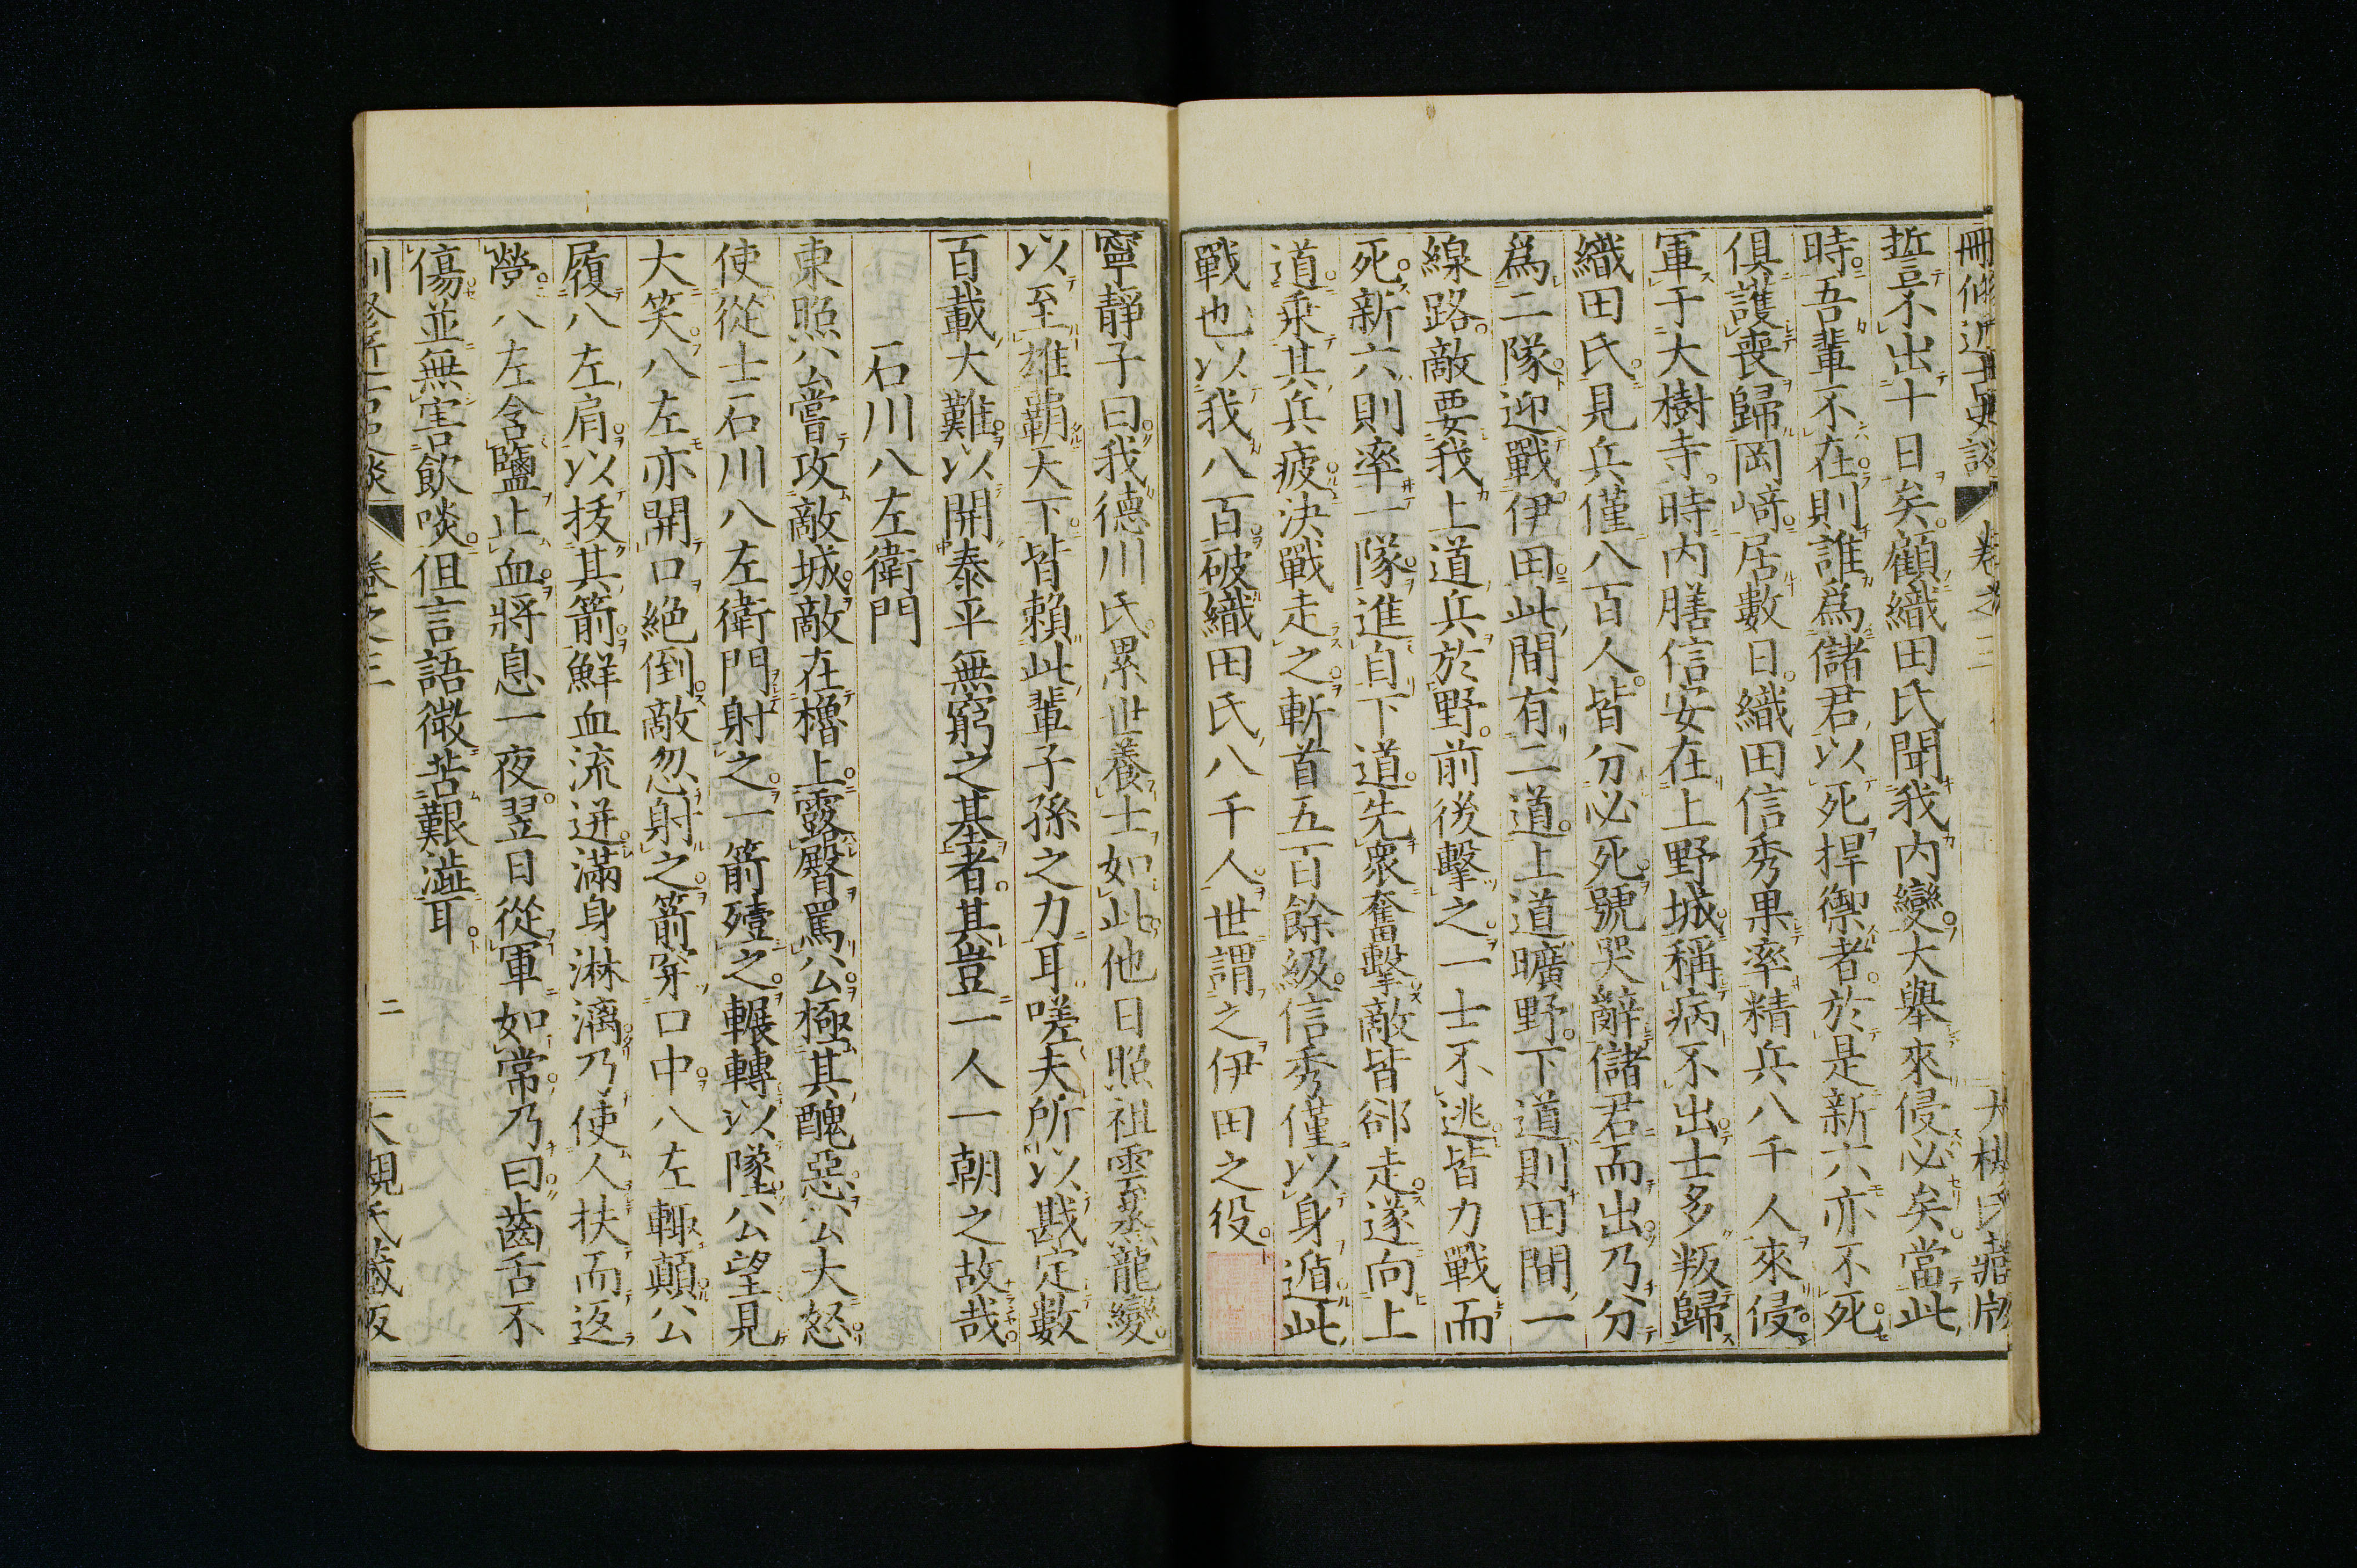 誓不出十日矣。顧織田氏聞我內變。大舉來侵必矣。當此
時。吾輩不在。則誰為儲君。以死捍禦者。於是新六亦不死。
俱護喪歸岡崎。居數日。織田信秀果率精兵八千人來侵。
軍于大樹寺。時內膳信安在上野城。稱病不出。士多叛歸
織田氏。見兵僅八百人。皆分必死。號哭辭儲君而出。乃分
爲二隊。迎戰伊田。此間有二道。上道曠野。下道則田間一
線路。敵要我上道兵於野。前後擊之。一士不逃。皆力戰而
死。新六則率一隊。進自下道。先衆奮擊。敵皆郤走。遂向上
道。乘其兵疲。決戰走之。斬首五百餘級。信秀僅以身遁。此
戰也。以我八百。破織田氏八千人。世謂之伊田之役。
寧靜子曰。我德川氏。累世養士如此。他日照祖雲蒸龍變。
以至雄霸天下。皆賴此輩子孫之力耳。嗟夫所以戡定數
百載大難。以開泰平無窮之基者。其豈一人一朝之故哉。
石川八左衛門
東照公嘗攻敵城。敵在櫓上。露臀罵公。極其醜惡。公大怒。
使從士石川八左衛門射之。一箭殪之。輾轉以墜。公望見
大笑。八左亦開口絕倒。敵忽射之。箭穿口中。八左輙顛。公
履八左肩。以拔其箭。鮮血流迸。滿身淋漓。乃使人扶而返
營。八左含鹽止血。將息一夜。翌日從軍如常。乃曰。齒舌不
傷。並無害飲啖。但言語微苦艱澁耳。
卷之三 二